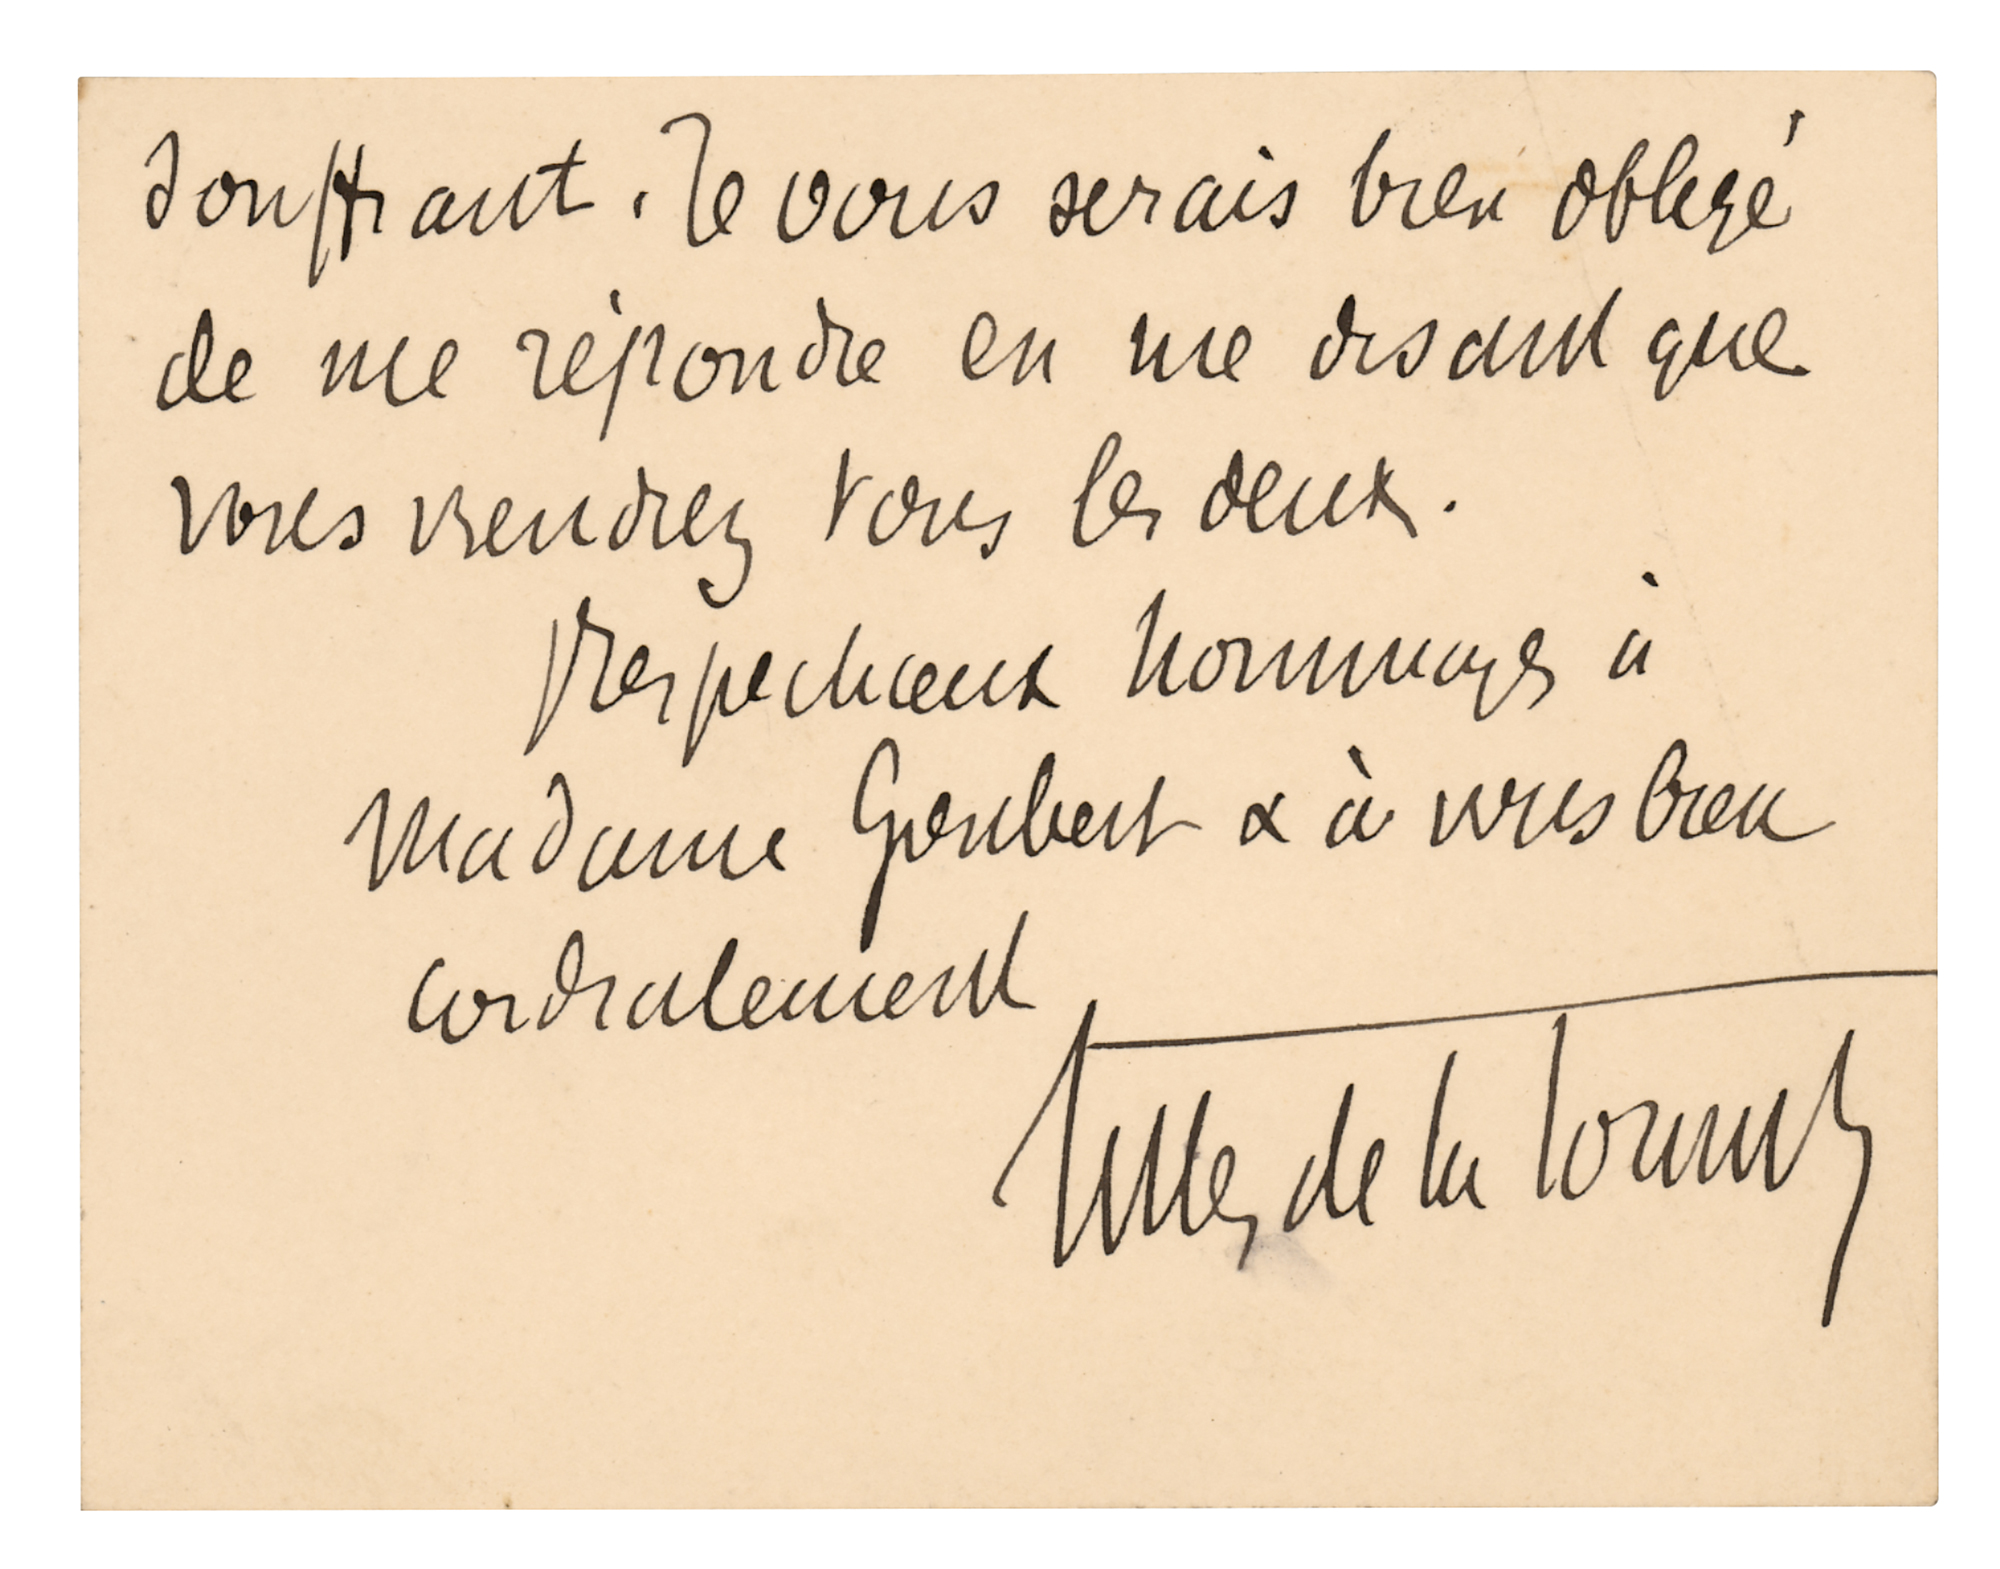 souffrant. Je vous serais bien obligé
de me répondre en me disant que
vous viendrez tous les deux.
Respectueux hommages à
Madame Goubert & à vous bien
cordialement
Gilles de la Tourette